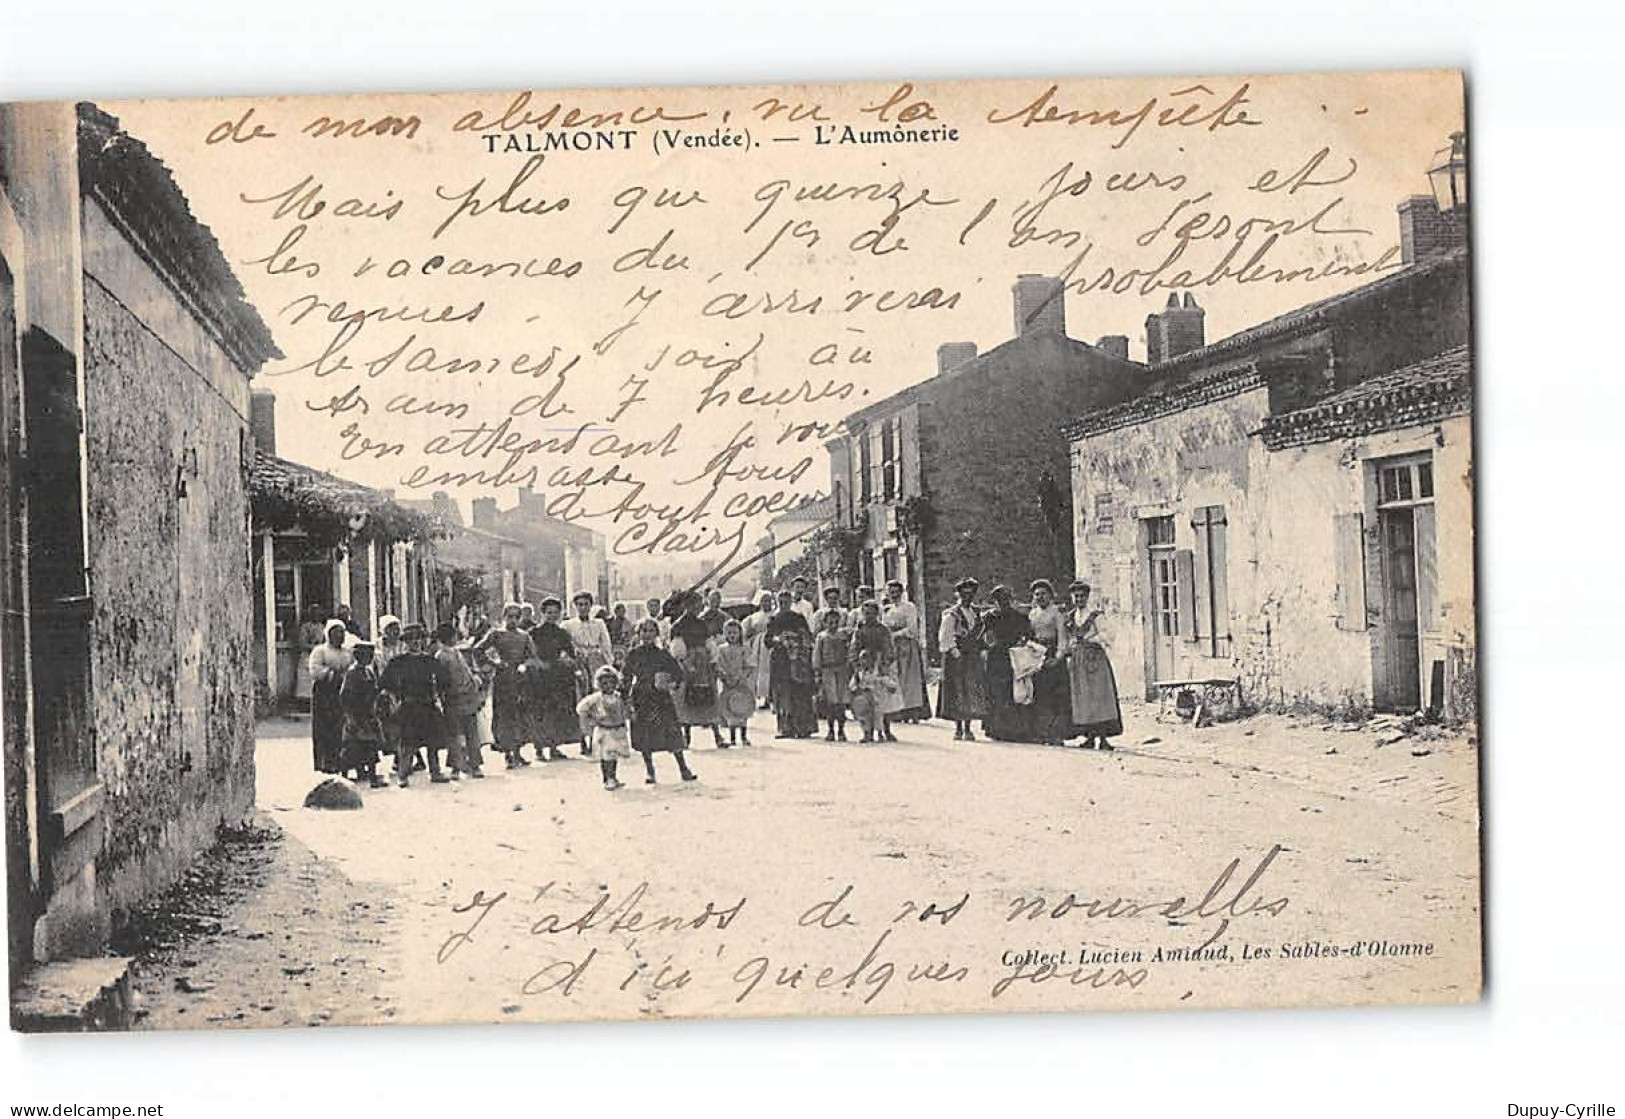 de mon absence, vu la tempête
TALMONT (Vendée). — L'Aumônerie
Mais plus que quinze jours, et
les vacances du 1er de l'an seront
venues. J'arriverai probablement
le samedi soir au
train de 7 heures.
En attendant je vous
embrasse tous
de tout coeur
Clair
J'attends de vos nouvelles
d'ici quelques jours,
Collect. Lucien Amiaud, Les Sables-d'Olonne
Dupuy-Cyrille
delcampe.net